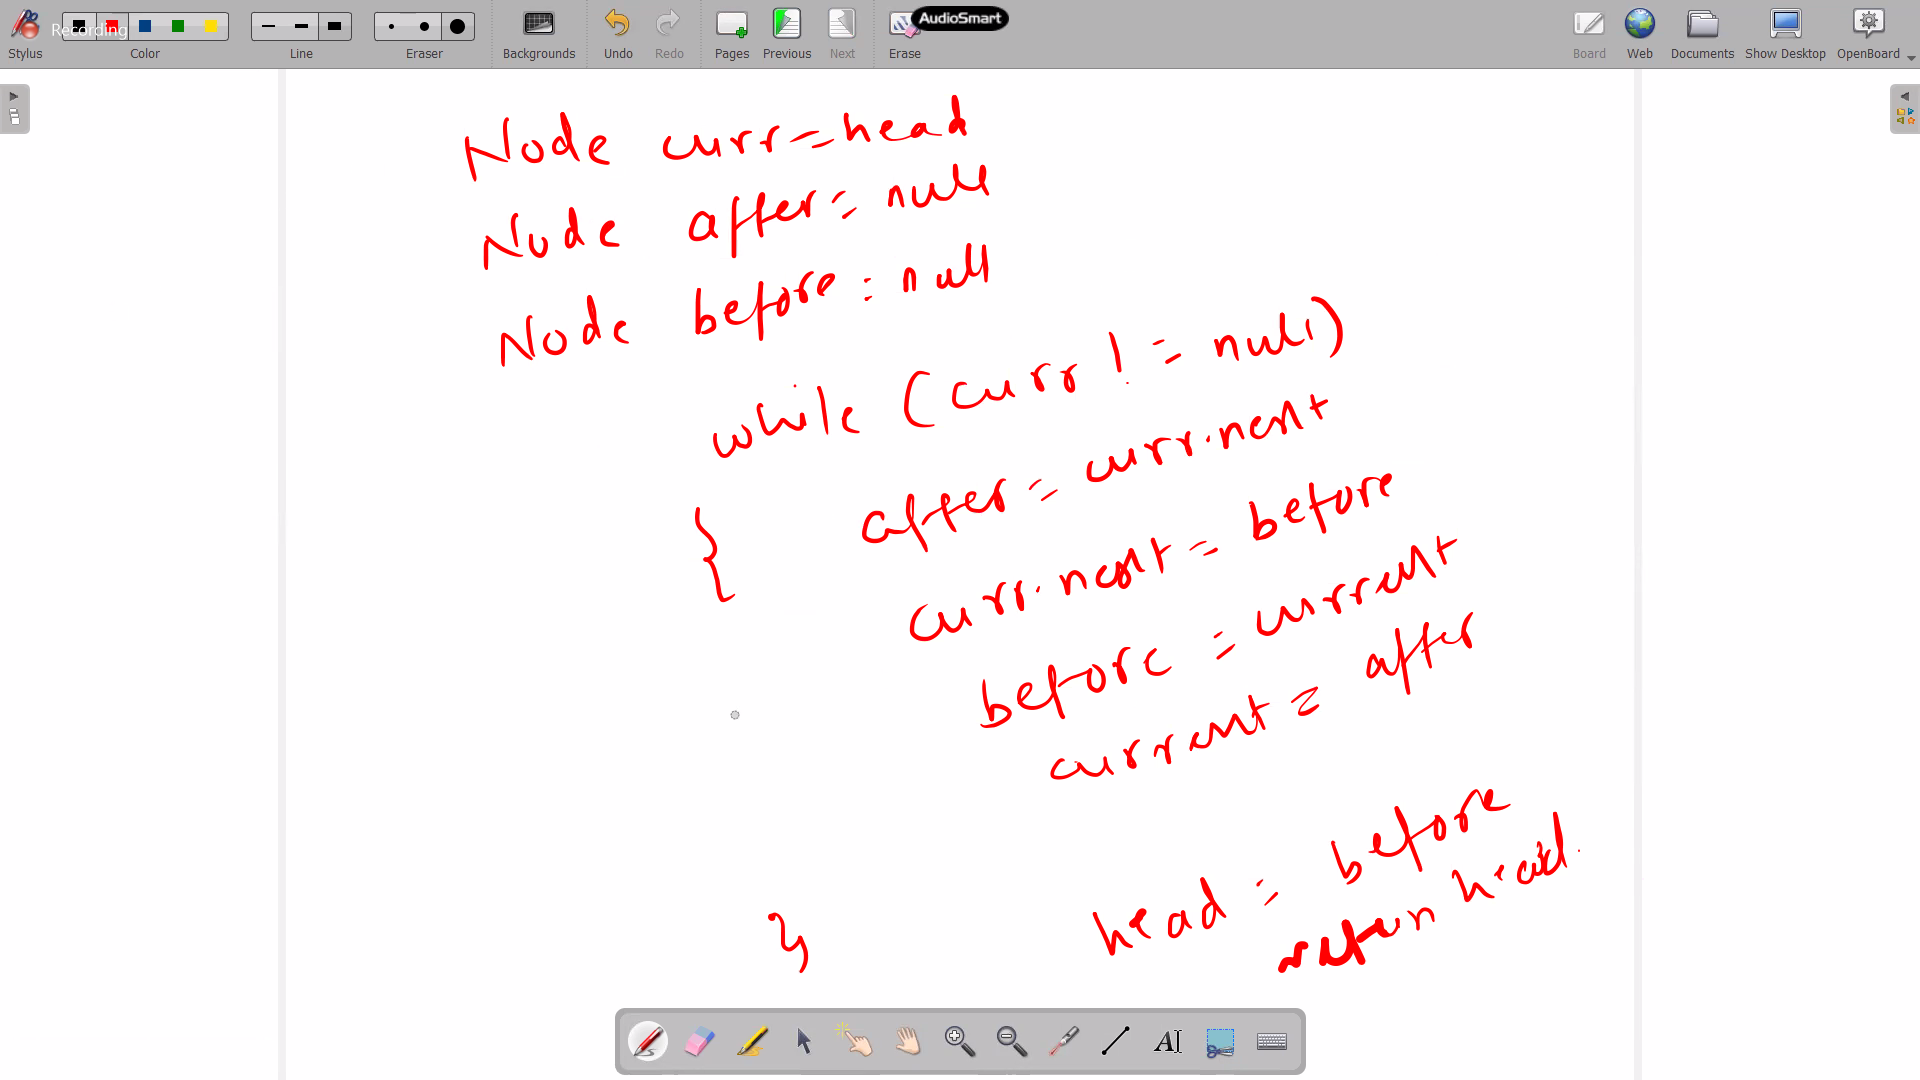 Recording
AudioSmart
Stylus Color Line Eraser Backgrounds Undo Redo Pages Previous Next Erase Board Web Documents Show Desktop OpenBoard
Node curr = head
Node after = null
Node before = null
while (curr != null)
{ after = curr.next
curr.next = before
before = current
current = after
head = before
}
return head.